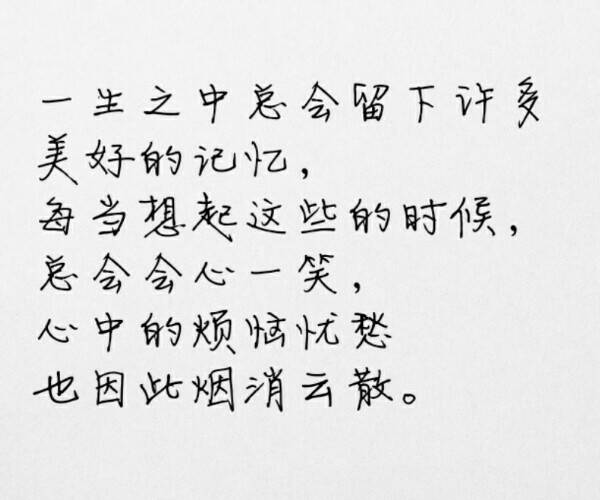 一生之中总会留下许多
美好的记忆，
每当想起这些的时候，
总会会心一笑，
心中的烦恼忧愁
也因此烟消云散。